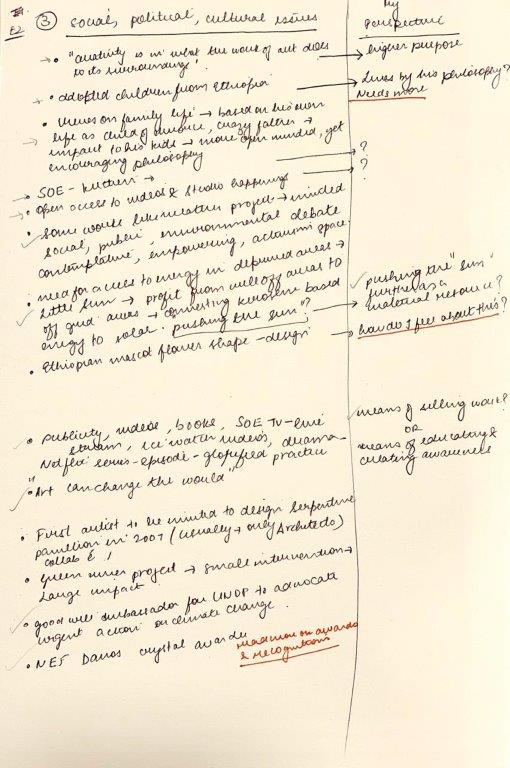 E2
③ Social, political, cultural issues
My
perspective
• "creativity is in what the work of art does
to its surroundings".
higher purpose
• adopted children from Ethiopia
lives by his philosophy?
Needs more
• views on family life → based on his own
life as child of divorce, crazy father →
impact to his kids → more open minded, yet
encouraging philosophy
→ SOE - kitchen →
?
→ • Open access to videos & studio happenings
?
• Some works like weather project → minded
social, public, environmental debate
contemplative, empowering, activism space.
• need for access to energy in deprived areas →
Little sun → profit from well off areas to
off grid areas → converting kerosene based
energy to solar. pushing the sun"?
pushing the "sun"
further as a
material resource?
• Ethiopian mascot flower shape - design
how do I feel about this?
• publicity, videos, books, SOE TV - live
stream, ice water videos, drama -
Netflix series - episode - glorified practice
means of selling work?
OR
means of educating &
creating awareness
"Art can change the world"
• First artist to be invited to design serpentine
pavillion in 2007 (usually → only Architects)
collab &
• green river project → small intervention →
Large impact
• good will ambassador for UNDP to advocate
urgent action on climate change.
• WEF Davos crystal awards
read more on awards
& recognitions